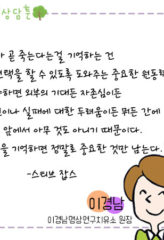 상담톤
곧 죽는다는걸 기억하는 건
택을 할 수 있도록 도와주는 중요한 원동력
하면 외부의 기대든 자존심이든
이나 실패에 대한 두려움이든 뭐든 간에
앞에서 아무 것도 아니기 때문이다.
을 기억하면 정말로 중요한 것만 남는다.
-스티브 잡스
이경남
이경남명상연구치유소 원장